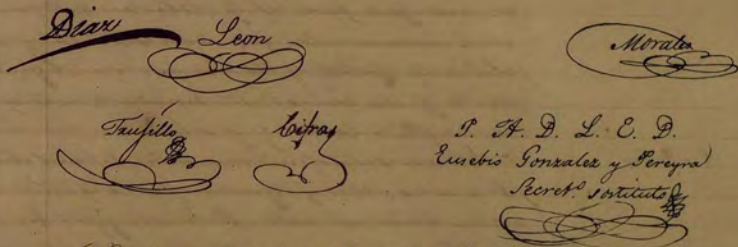 Diaz
Leon
Morales
Truxillo
Cifra
P. A. D. L. E. D.
Eusebio Gonzalez y Pereyra
Secret.º sostituto